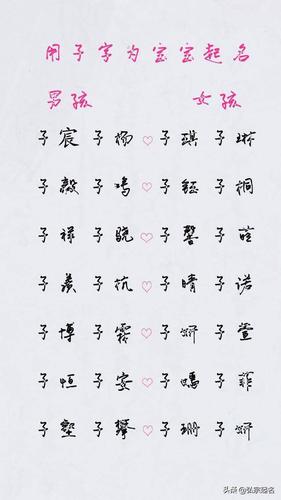 用子字为宝宝起名
男孩 女孩
子宸 子杨 ♡ 子琪 子琳
子毅 子鸣 ♡ 子钰 子桐
子祥 子骁 ♡ 子馨 子萱
子羲 子杭 ♡ 子晴 子诺
子博 子霖 ♡ 子妍 子萱
子恒 子安 ♡ 子嫣 子菲
子墊 子攀 ♡ 子珊 子妍
头条@弘宗起名